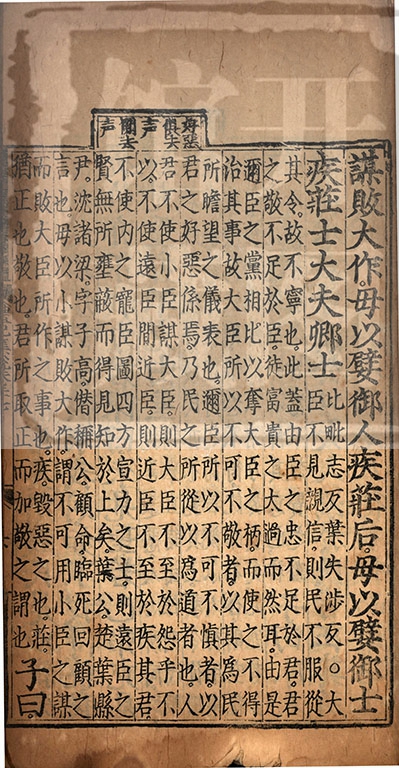 好惡
俱去
声
間去
声
謀敗大作毋以嬖御人疾莊后毋以嬖御士
疾莊士大夫卿士
比毗志反葉失涉反○大
臣不見親信則民不服從
其令故不寧也此蓋由臣之忠不足於君君
之敬不足於臣徒富貴之太過而然耳由是
邇臣之黨相比以奪大臣之柄而使之不得
治其事故大臣所以不可不敬者以其爲民
所瞻望之儀表也邇臣所以不可不慎者以
君之好惡係焉乃民之所從以爲道者也人
君不使小臣謀大臣則大臣不至於怨乎不
以不使遠臣間近臣則近臣不至於疾其君
不使內之寵臣圖四方宣力之士則遠臣之
賢無所壅蔽而得見知於上矣葉公楚葉縣
尹沈諸梁字子高僭稱公顧命臨死回顧之
言也毋以小謀敗大作謂不可用小臣之謀
而敗大臣所作之事也疾毀惡之也莊
猶正也敬也君所取正而加敬之謂也
子曰